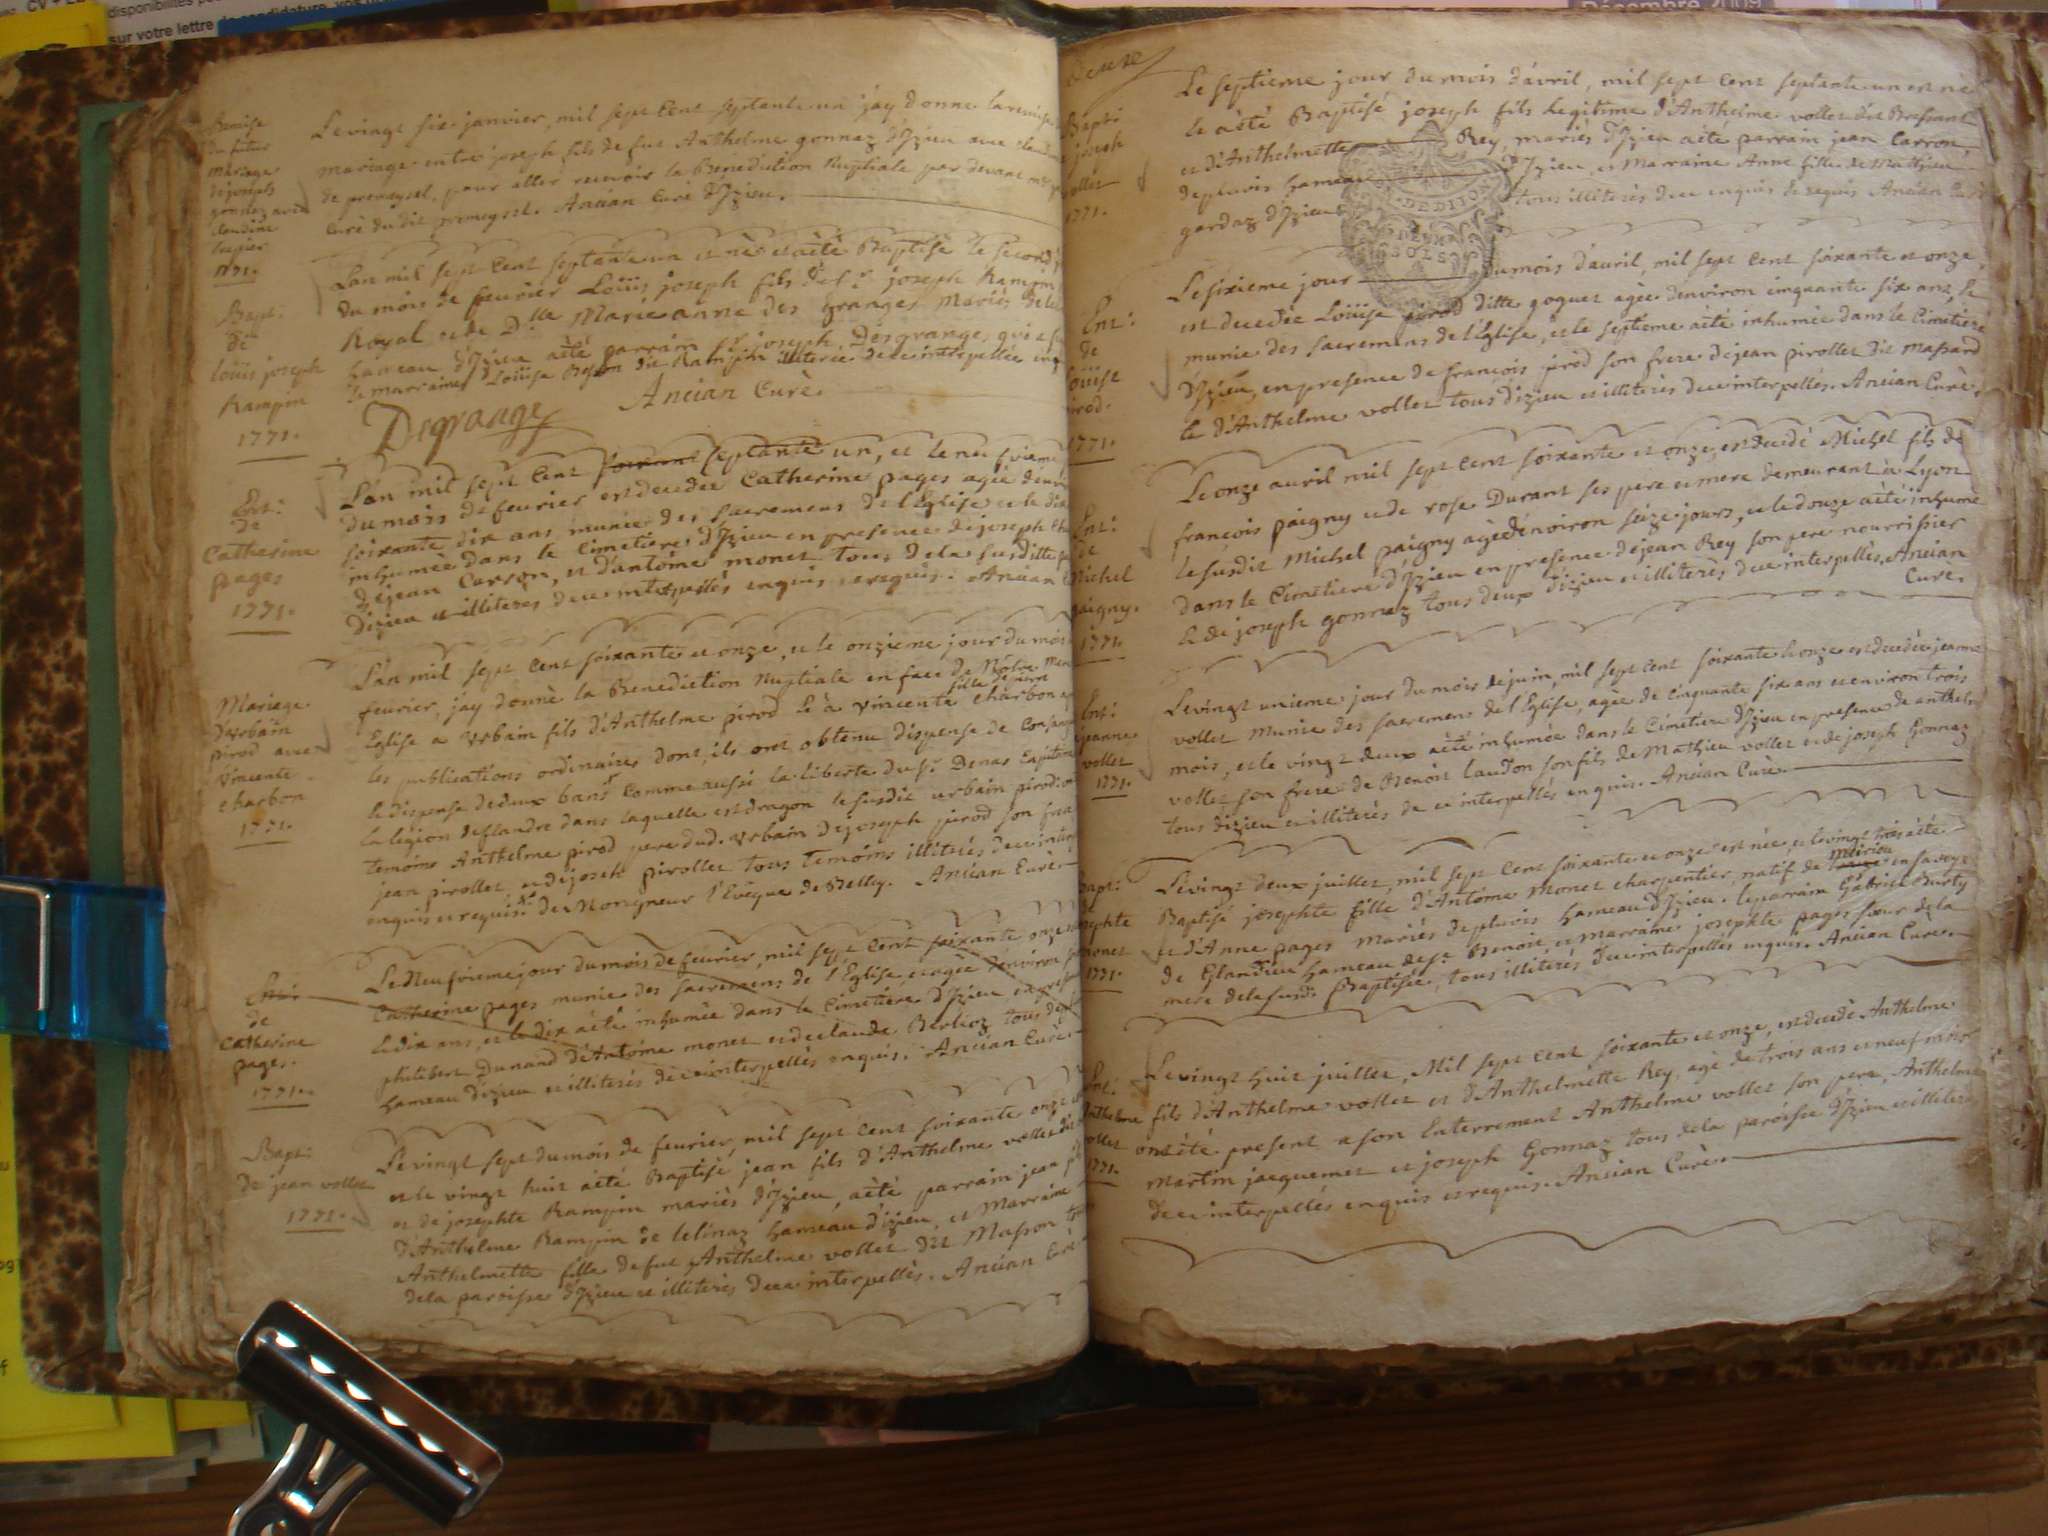 disponibilités
sur votre lettre de candidature
Décembre 2009
Remise
du futur
mariage
de joseph
gonnaz avec
claudine
1771.
Le vingt six janvier, mil sept cent septante un jay donné la remise
mariage entre joseph fils de feu Anthelme gonnaz d'Izieu avec
de premeysel, pour aller recevoir la Benediction Nuptiale par devant mr
curé dudit premeysel. Ancian Curé d'Izieu.
Bapt:
de
loüis joseph
Rampin
1771.
L'an mil sept cent septante un est né et a été Baptisé le second
du mois de fevrier Loüis joseph fils de sr. joseph Rampin
Royal et de Dlle Marie anne des granges Mariés de
hameau d'Izieu a été parrain sr joseph Desgranges qui a
et marraine Loüise dit Rampin illiterée de ce interpellée
Degrange
Ancian Curé.
Ent:
de
Catherine
pages
1771.
L'an mil sept cent soixante septante un, et le neufvieme
du mois de fevrier est decedée Catherine pages agée
soixante dix ans munie des sacremens de l'Eglise et le dix
inhumée dans le Cimetiere d'Izieu en presence de joseph
de jean Carron, et d'antôine monet tous de la susditte
dizieu et illiterés de ce interpellés enquis et requis. Ancian
Mariage
d'urbain
pirod avec
Vincente
charbon
1771.
L'an mil sept cent soixante et onze, et le onzieme jour du mois
fevrier, jay donné la Benediction Nuptiale en face de Nôtre
fille de pierre
Eglise a Urbain fils d'Anthelme pirod & à Vincente charbon
les publications ordinaires dont ils ont obtenu dispense de
& dispense de deux bans comme aussi la liberté du sr. Denas Capitaine
la legion de flandre dans laquelle est dragon le susdit urbain pirod
temoins Anthelme pirod pere dud. Urbain de joseph pirod son frere
jean pirollet, et de joseph pirollet tous temoins illiterés de ce
enquis et requis de Monsigneur l'Evêque de Belley. Ancian Curé
Ent:
de
Catherine
pages.
1771.
Le Neufvieme jour du mois de fevrier, mil sept cent soixante onze
Catherine pages munie des sacremens de l'Eglise et agée d'environ
& dix ans, et le dix a été inhumée dans le Cimetiere d'Izieu
philibert Dunand d'Antoine monet et de claude Berlioz tous
hameau d'izieu et illiterés de ce interpellés enquis. Ancian Curé
Bapt:
de jean vollet
1771.
Le vingt sept du mois de fevrier, mil sept cent soixante onze
et le vingt huit a été Baptisé jean fils d'Anthelme vollet dit
et de josephte Rampin mariés d'Izieu, a été parrain jean
d'Anthelme Rampin de lelinaz hameau d'izieu, et Marraine
Anthelmette fille de feu Anthelme vollet dit Masson
de la paroisse d'Izieu et illiterés de ce interpellés. Ancian Curé
Deuxe
Bapt:
joseph
vollet
1771.
Le septieme jour du mois d'avril, mil sept cent septante un est né
& a été Baptisé joseph fils legitime d'Anthelme vollet dit Brassard
et d'Anthelmette Rey, mariés d'Izieu a été parrain jean Carron,
de pluvis hameau d'Izieu, et Marraine Anne fille de Mathieu
gardaz d'Izieu tous illiterés de ce enquis & requis Ancian Curé
DEUX
SOLS
Ent:
de
Loüise
pirod.
1771.
Le sixieme jour du mois d'avril, mil sept cent soixante et onze,
est decedée Loüise pirod ditte goguet agée d'environ cinquante six ans, &
munie des sacremens de l'Eglise, et le septieme a été inhumée dans le Cimetiere
d'Izieu, en presence de françois pirod son frere de jean pirollet dit Massard
& d'Anthelme vollet tous dizieu et illiterés de ce interpellés. Ancian Curé.
Ent:
de
Michel
paigny.
1771.
Le onze avril mil sept cent soixante et onze, est decedé Michel fils de
françois paigny et de rose Durant ses pere et mere demeurant à Lyon
le susdit Michel paigny agé d'environ seize jours, et le douze a été inhumé
dans le Cimetiere d'Izieu en presence de jean Rey son pere nourrissier
& de joseph gonnaz tous deux dizieu et illiterés de ce interpellés. Ancian
Curé.
Ent:
jeanne
vollet
1771.
Le vingt unieme jour du mois de juin, mil sept cent soixante & onze est decedée jeanne
vollet Munie des sacremens de l'Eglise, agée de cinquante six ans et environ trois
mois, et le vingt deux a été inhumée dans le Cimetiere d'Izieu en presence de anthelme
vollet son frere de Benoit laudon son fils de Mathieu vollet et de joseph Gonnaz
tous dizieu et illiterés de ce interpellés enquis. Ancian Curé.
Bapt:
de
josephte
monet
1771.
Le vingt deux juillet, mil sept cent soixante et onze est née, et le vingt trois a été
Baptisé josephte fille d'Antoine Monet charpentier, natif de en savoye
et d'Anne pages mariés de pluvis hameau d'Izieu. le parrain Gabriel Burty
de Glandieu hameau de st. Benoit, et marraine josephte pages sœur de la
mere de la susd. Baptisée, tous illiterés de ce interpellés enquis. Ancian Curé.
Ent:
Anthelme
vollet
1771.
Le vingt huit juillet, Mil sept cent soixante et onze, est decedé Anthelme
fils d'Anthelme vollet et d'Anthelmette Rey, agé de trois ans et neuf mois
ont été present a son Enterrement Anthelme vollet son pere, Anthelme
martin jacquemet et joseph Gonnaz tous de la paroisse d'Izieu et illiterés
de ce interpellés enquis et requis. Ancian Curé.